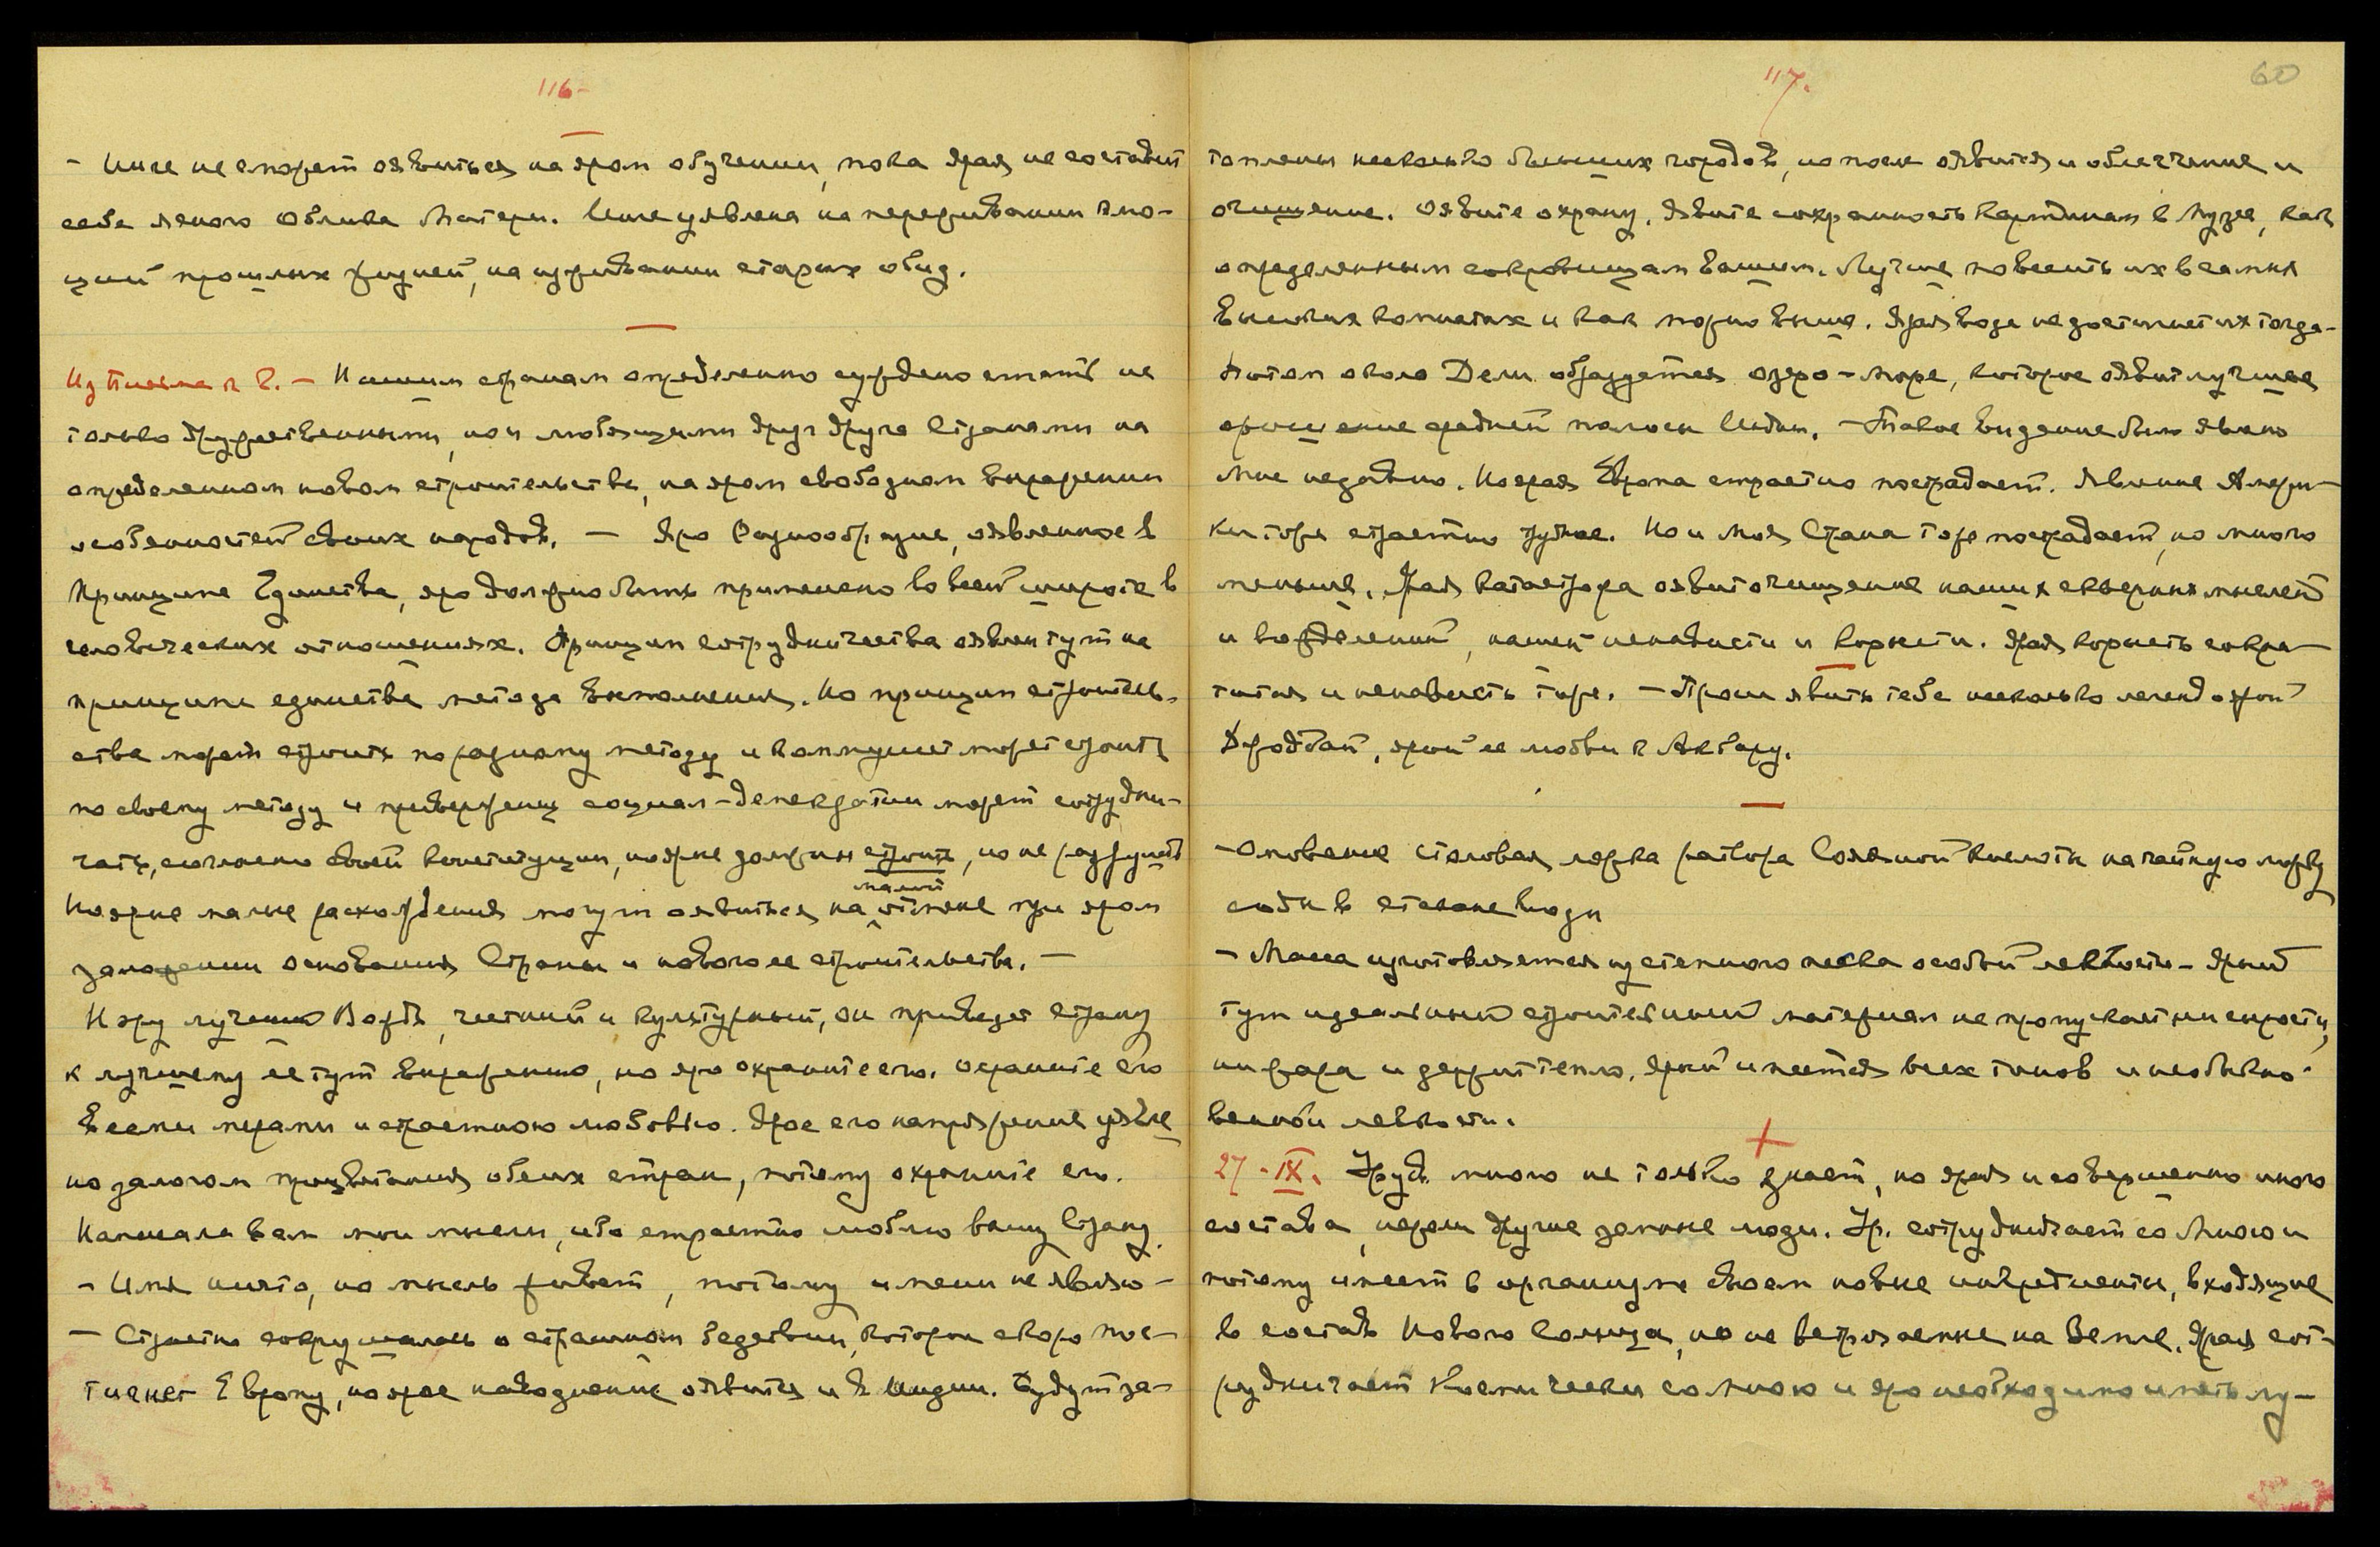 116-
- Инге не может оявиться на яром обучении, пока ярая не составит
себе ясного Облика Матери. Инге уявлена на переживании эмо-
ций прошлых жизней, на изживании старых обид.
Из Письма к В. - Нашим странам определенно суждено стать не
только дружественными, но и любящими друг друга Странами на
определенном новом строительстве, на яром свободном выражении
особенностей своих народов. - Яро Разнообразие, оявленное в
Принципе Единства, яро должно быть применено во всей широте в
человеческих отношениях. Принцип сотрудничества оявлен тут на
принципе единства метода выполнения. Но принцип строитель-
ства может строить по разному методу и коммунист может строить
по своему методу и приверженец социал-демократии может сотрудни-
чать, согласно своей конституции, но ярые должны строить, но не разрушать
Но ярые малые расхождения могут оявиться на малой отмене при яром
заложении основания Страны и нового ее строительства. -
Неру лучший Вождь, честный и культурный, он приведет страну
к лучшему ее тут выражению, но яро охраните его. Охраните его
всеми мерами и страстною любовью. Ярое его напряжение уявле-
но залогом процветания обеих стран, потому охраните его.
Написала вам мои мысли, ибо страстно люблю вашу Страну.
- Имя ничто, но мысль живет, потому имени не являю -
- Страстно сокрушалась о страшном бедствии, которое скоро пос-
тигнет Европу, но ярое наводнение оявится и в Индии. Будут за-
117.
60
топлены несколько больших городов, но после оявится и облегчение и
очищение. Оявите охрану, явите сохранность картинам в Музее, как
определенным сокровищам вашим. Лучше повесить их в самых
высоких комнатах и как можно выше. Ярая вода не достигнет их тогда -
Потом около Дели образуется озеро-море, которое оявит лучшее
орошение средней полосы Индии. - Такое видение было явлено
мне недавно. Но ярая Европа страстно пострадает. Явление Амери-
ки тоже страстно чуткое. Но и Моя Страна тоже пострадает, но много
меньше. Ярая катастрофа оявит очищение наших скверных мыслей
и вожделений, нашей ненависти и корысти. Ярая корысть сокра-
тится и ненависть тоже. - Прошу явить тебе несколько легенд о ярой
Джодбай, ярой ее любви к Акбару.
- Основание столовая ложка раствора Соляной кислоты на чайную ложку
соды в стакане воды
- Масса изготовляется из степного песка особой легкости - Ярый
тут идеальный строительный материал не пропускает ни сырости,
ни жара и держит тепло. Ярый имеется всех типов и необыкно-
венной легкости.
27-IX. Грудь много не только знает, но ярая и совершенно иного
состава, нежели другие земные люди. Гр. сотрудничает со Мною и
потому имеет в организме своем новые ингредиенты, входящие
в состав Нового Солнца, но не встречаемые на Земле. Ярая сот-
рудничает Космически со мною и яро необходимо иметь лу-